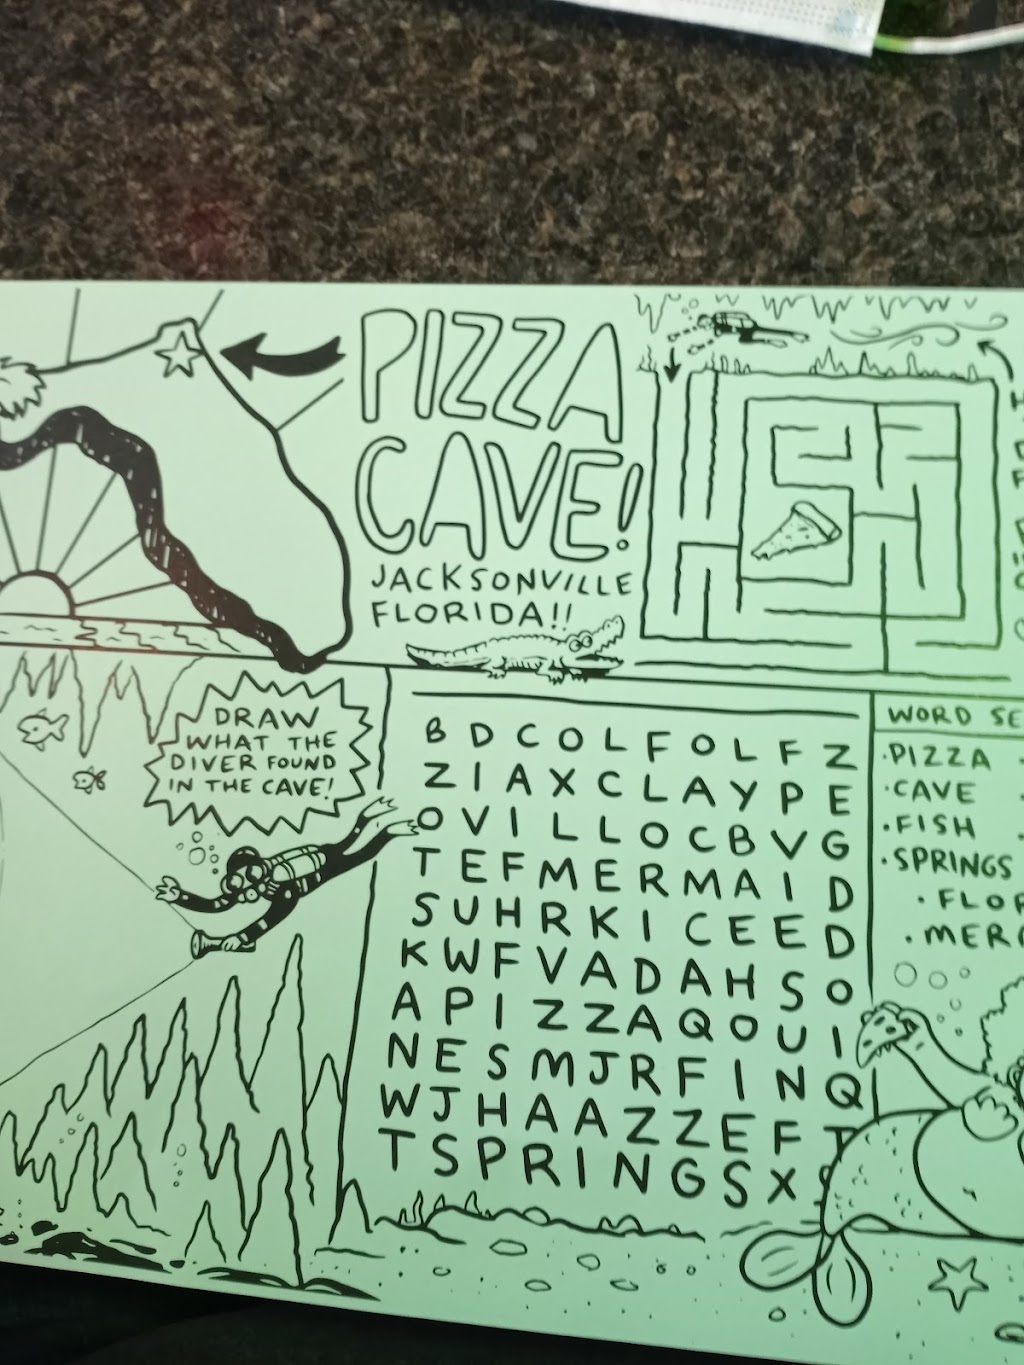 PIZZA
CAVE!
JACKSONVILLE
FLORIDA!!
DRAW
WHAT THE
DIVER FOUND
IN THE CAVE!
B D C O L F O L F Z
Z I A X C L A Y P E
O V I L L O C B V G
T E F M E R M A I D
S U H R K I C E E D
K W F V A D A H S O
A P I Z Z A Q O U I
N E S M J R F I N Q
W J H A A Z Z E F T
T S P R I N G S X
WORD SE
·PIZZA
·CAVE
·FISH
·SPRINGS
·FLOR
·MERM